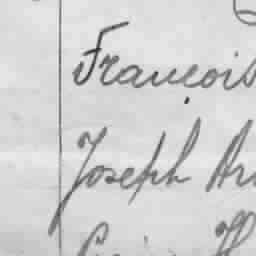 François
Joseph Ar